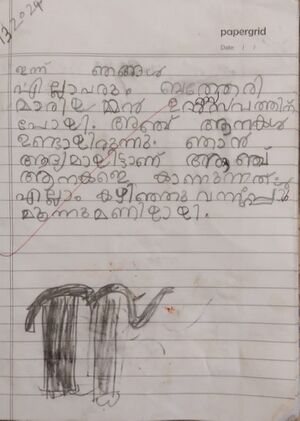 13 2024
papergrid
Date / /
ഇന്ന് ഞങ്ങൾ
എല്ലാവരും ബത്തേരി
മാരിയമ്മൻ ഉത്സവത്തിന്
പോയി. അഞ്ച് ആനകൾ
ഉണ്ടായിരുന്നു. ഞാൻ
ആദ്യമായിട്ടാണ് അഞ്ച്
ആനകളെ കാണുന്നത്.
എല്ലാം കഴിഞ്ഞു വന്നപ്പോൾ
മൂന്നുമണിയായി.